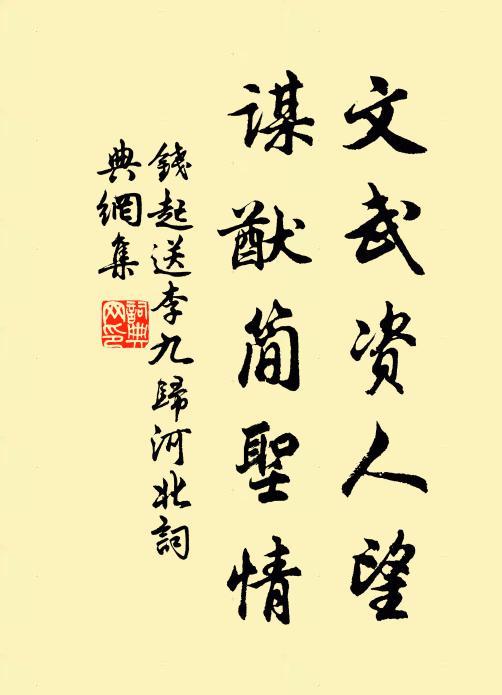 文武資人望
謀猷簡聖情
錢起送李九歸河北詞
典網集
詞典網印